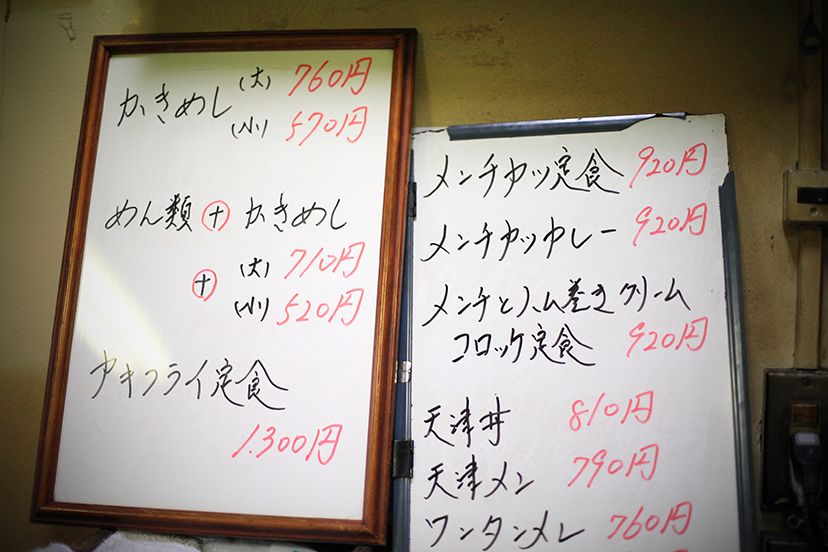 かきめし (大) 760円
(小) 570円
めん類 + かきめし
+ (大) 710円
(小) 520円
カキフライ定食
1.300円
メンチカツ定食 920円
メンチカツカレー 920円
メンチとハム巻きクリーム
コロッケ定食 920円
天津丼 810円
天津メン 790円
ワンタンメン 760円